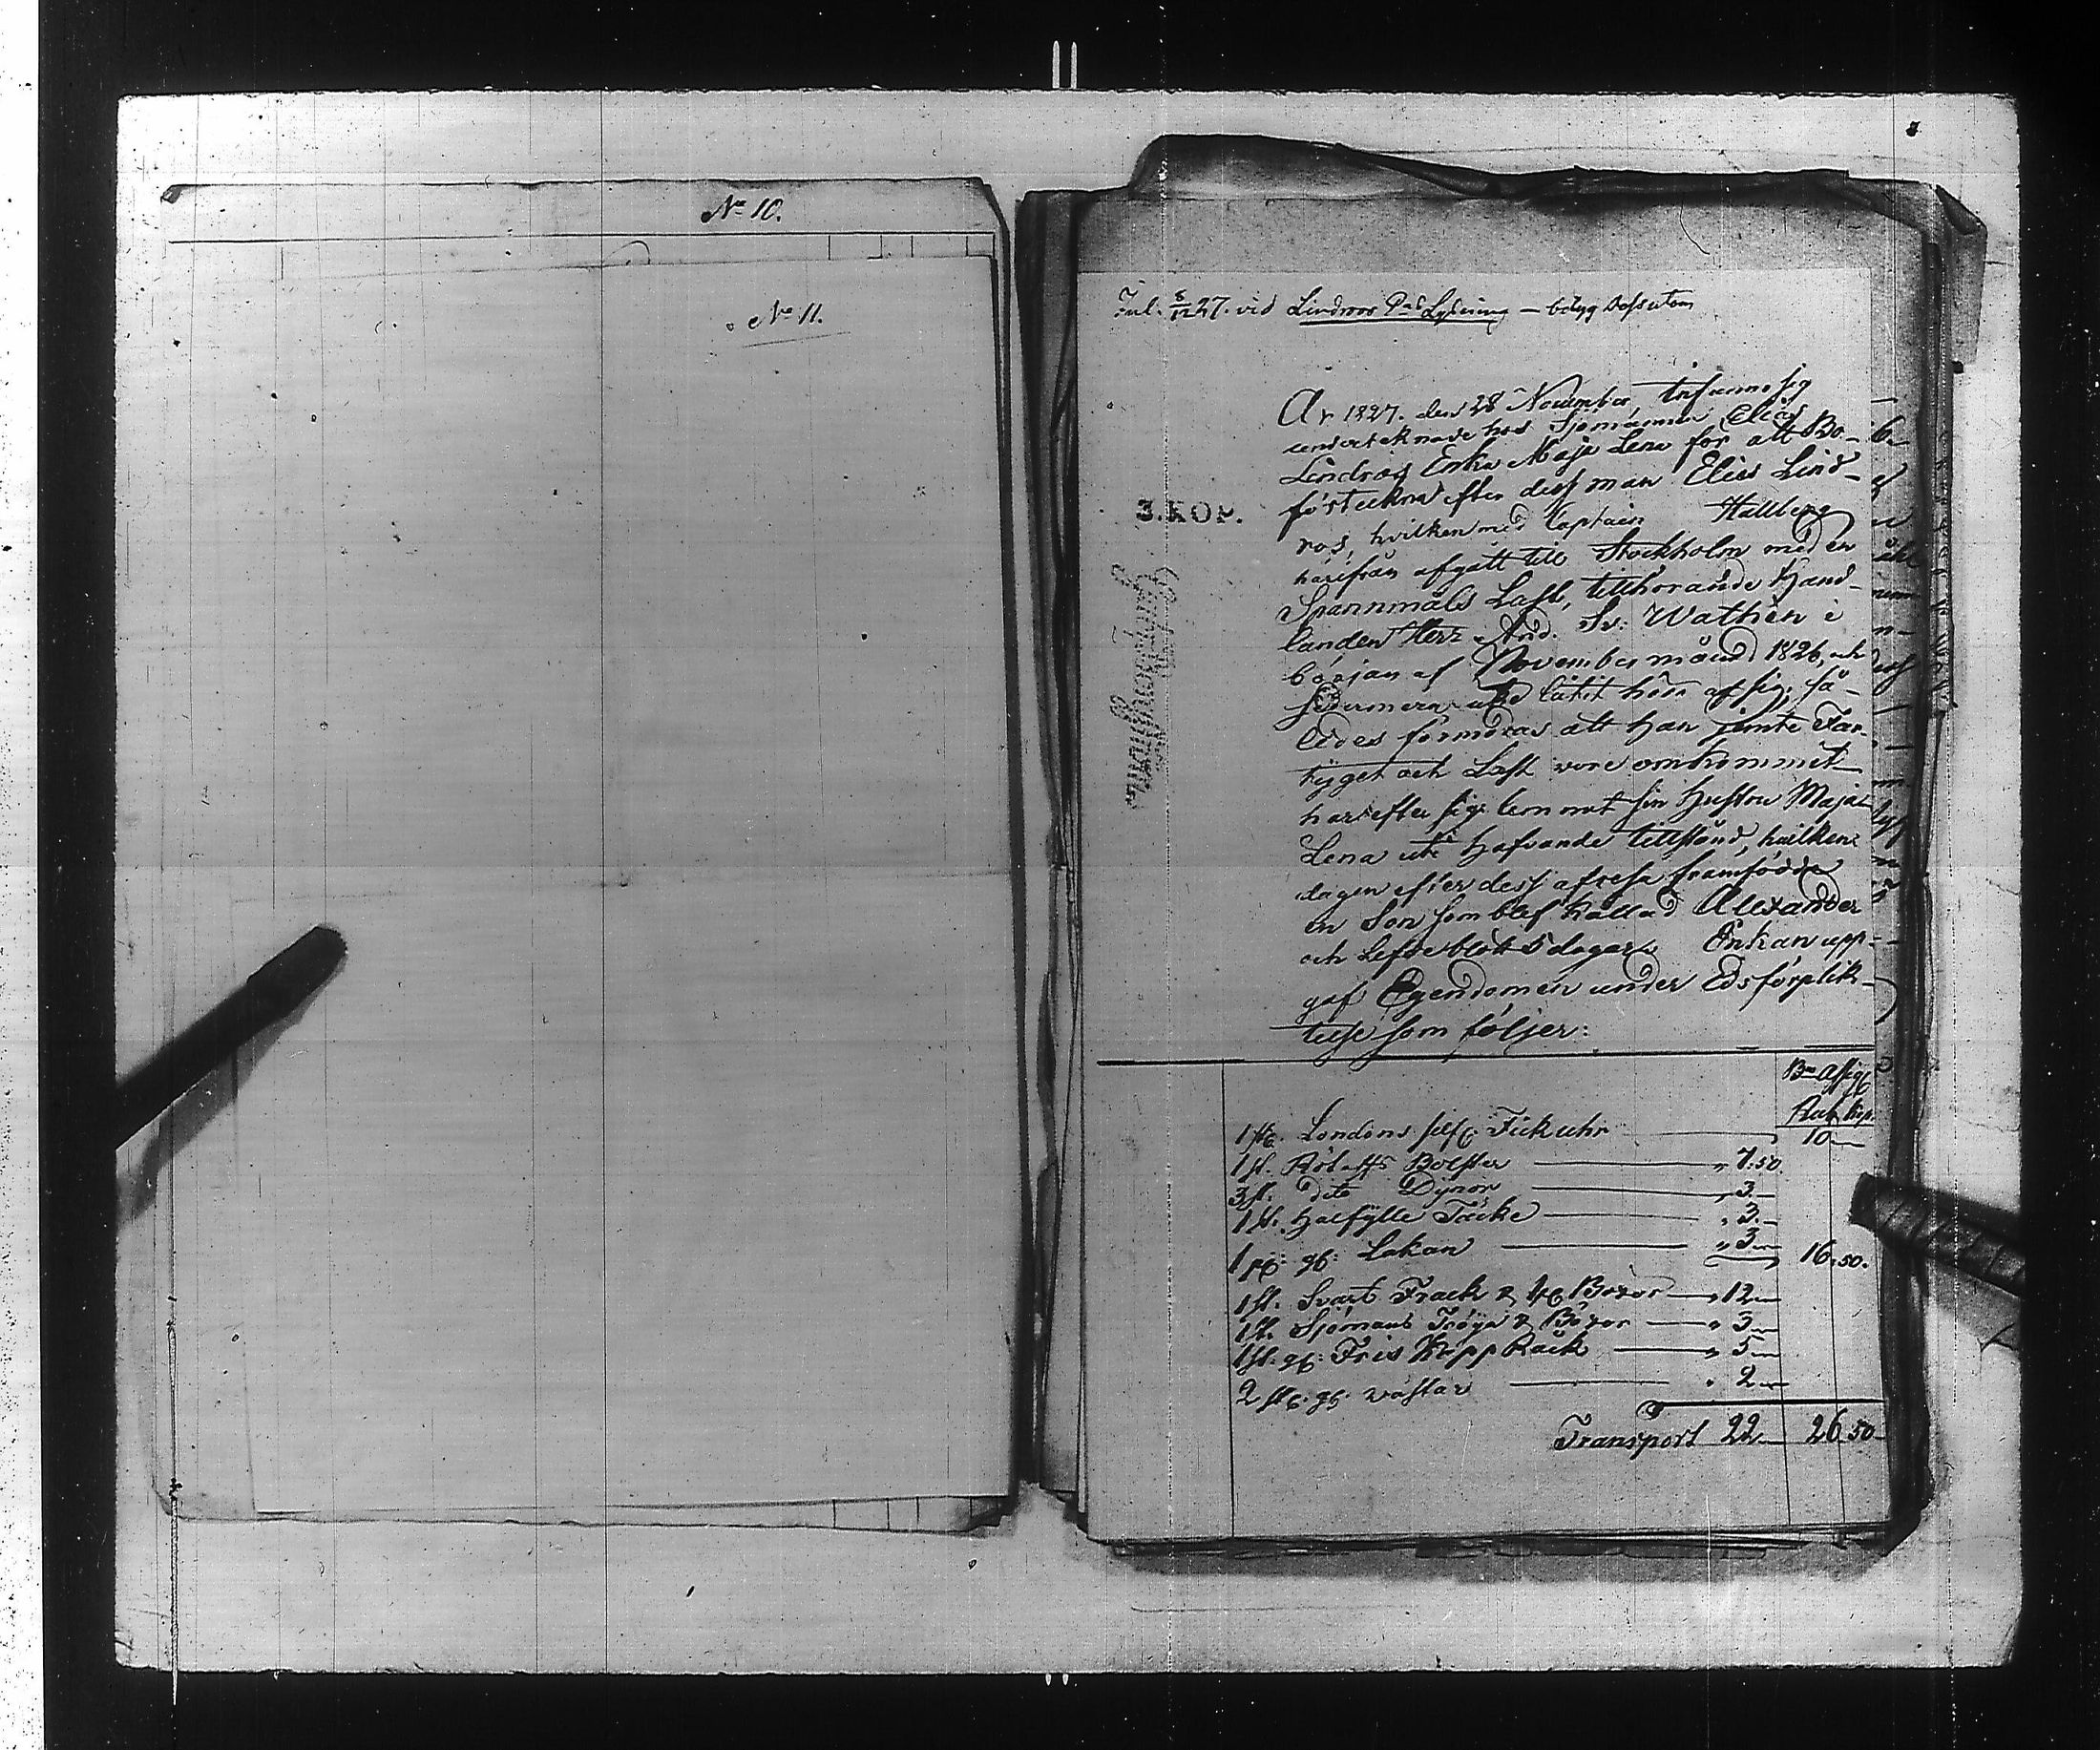 No 10.
No 11.
Jul. 8/12 27. vid Lindroos Lysning — betyg dessutom
År 1827. den 28 November, infunno sig
underteknade hos Sjömannen Elias
Lindros Enka Maja Lena for att Bo-
förteckna efter dess man Elias Lind-
3. KOP.
ros, hvilken med Captain Hallberg
härifrån afgått till Stockholm med en
Spannmåls Last, tillhörande Hand-
landen Herr And. Sv: Wathén i
början af November månad 1826, och
sedermera icke låtit höra af sig, så-
ledes förmodas att han jemte Far-
tyget och Last vore omkommit
har efter sig lemnat sin Hustru Maja
Lena uti Hafvande tillstånd, hvilken
dagen efter dess afresa framfödde
en Son som blef kallad Alexander
och Lefde blott 5 dagar. Enkan upp-
gaf Egendomen under Edsförplik-
telse som följer:
Bco Assig
Rub. Kop.
1 st. Londons silf. Fickuhr — 10 —
1 st. Bolster — " 7.50.
3 st. dito Dynor — " 3. —
1 st. Halfylle Täcke — " 3. —
1 p. gl: Lakan — " 3 — 16.50.
1 st. Svart Frack & Böxor — " 12 —
1 st. Sjömans Tröja & Böxor — " 3 —
1 st. gl: Fris Kapp Råck — " 5 —
2 st. gl: västar — " 2 —
Transport 22 — 26.50